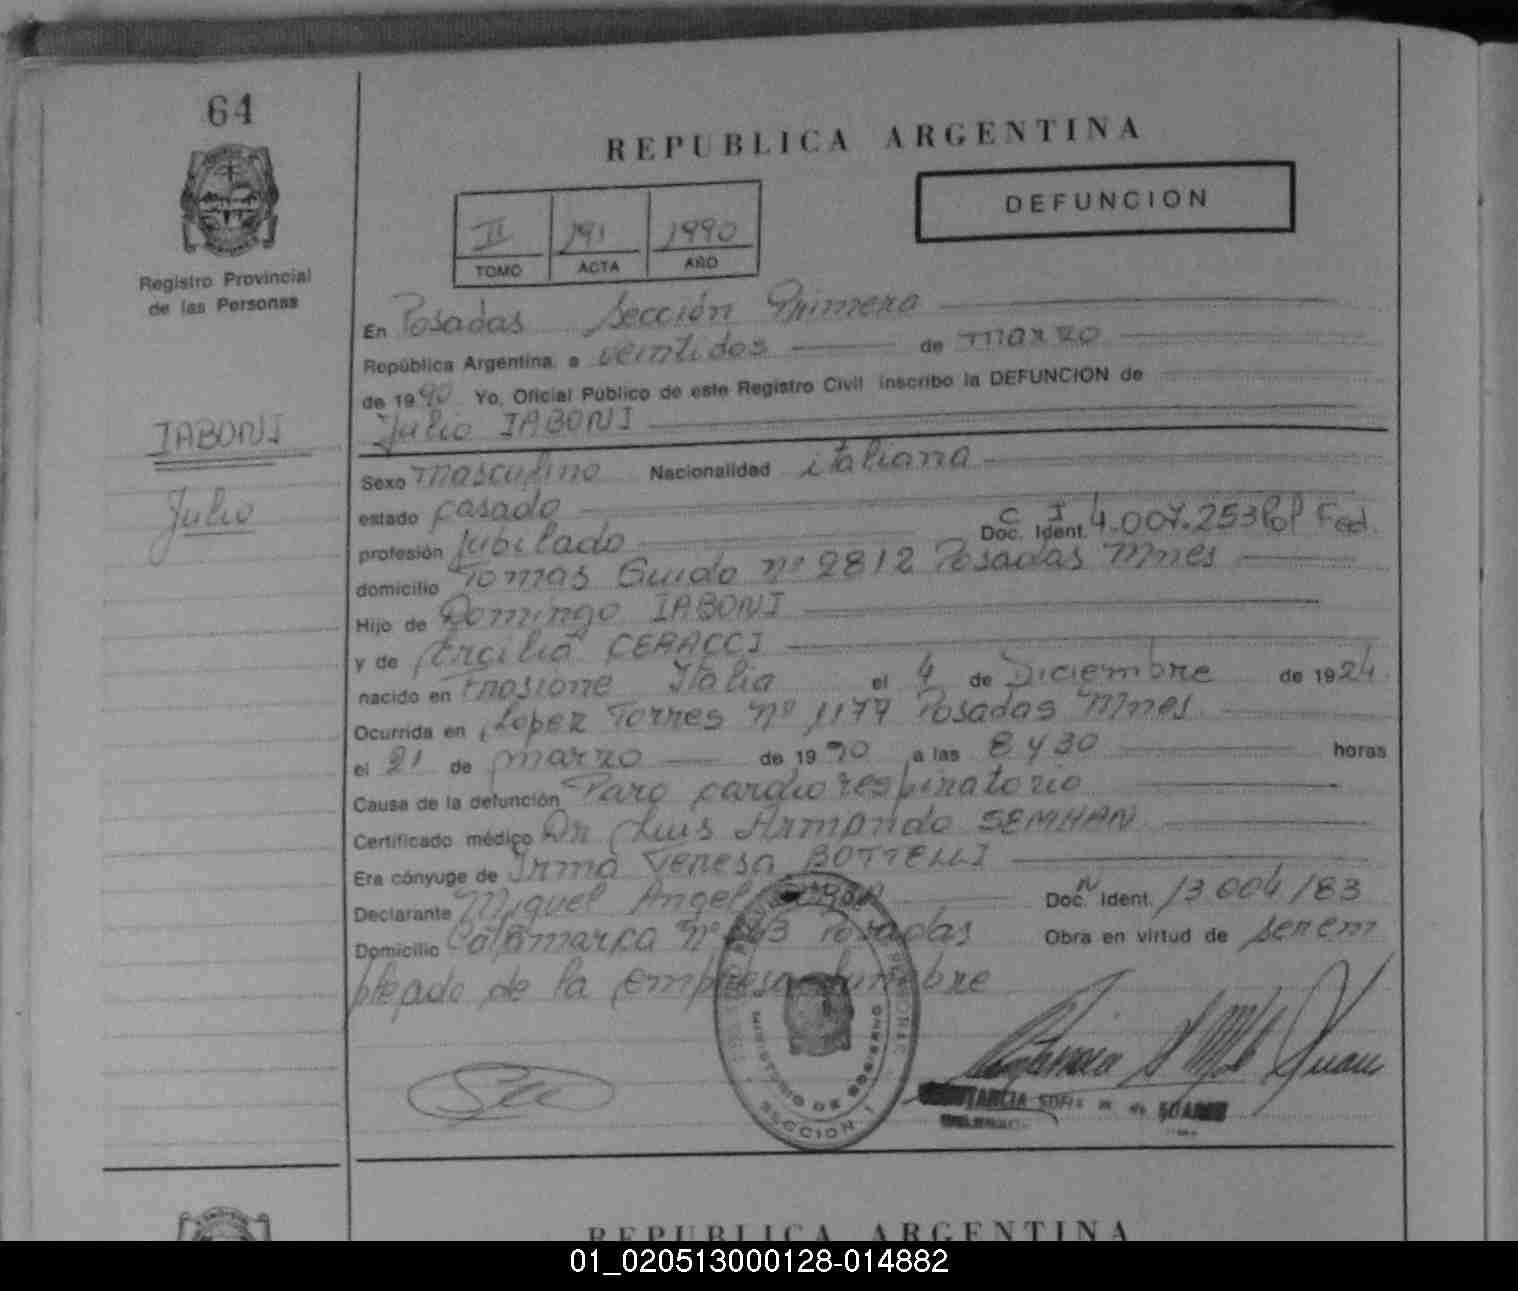 64
REPUBLICA ARGENTINA
DEFUNCION
II 191 1990
TOMO ACTA AÑO
Registro Provincial
de las Personas
En Posadas Sección Primera
República Argentina, a veintidos de marzo
de 1990 Yo, Oficial Público de este Registro Civil inscribo la DEFUNCION de
Julio IABONI
IABONI
Julio
Sexo masculino Nacionalidad italiana
estado casado
profesión Jubilado Doc. Ident. C I 4.007.253 Pol Fed.
domicilio Tomas Guido nº 2812 Posadas Mnes
Hijo de Domingo IABONI
y de Ercilia CERACCI
nacido en Frosione Italia el 4 de Diciembre de 1924
Ocurrida en Lopez Torres Nº 1177 Posadas Mnes
el 21 de marzo de 1990 a las 8 y 30 horas
Causa de la defunción Paro cardiorespiratorio
Certificado médico Dr Luis Armando SEMHAN
Era cónyuge de Irma Teresa BOTTELLI
Declarante Miguel Angel Doc. N Ident. 13.004.183
Domicilio Catamarca Nº Posadas Obra en virtud de ser em
pleado de la empresa funebre
MINISTERIO DE GOBIERNO
SECCION 1
SOFIA M. de SOARES
REPUBLICA ARGENTINA
01_020513000128-014882